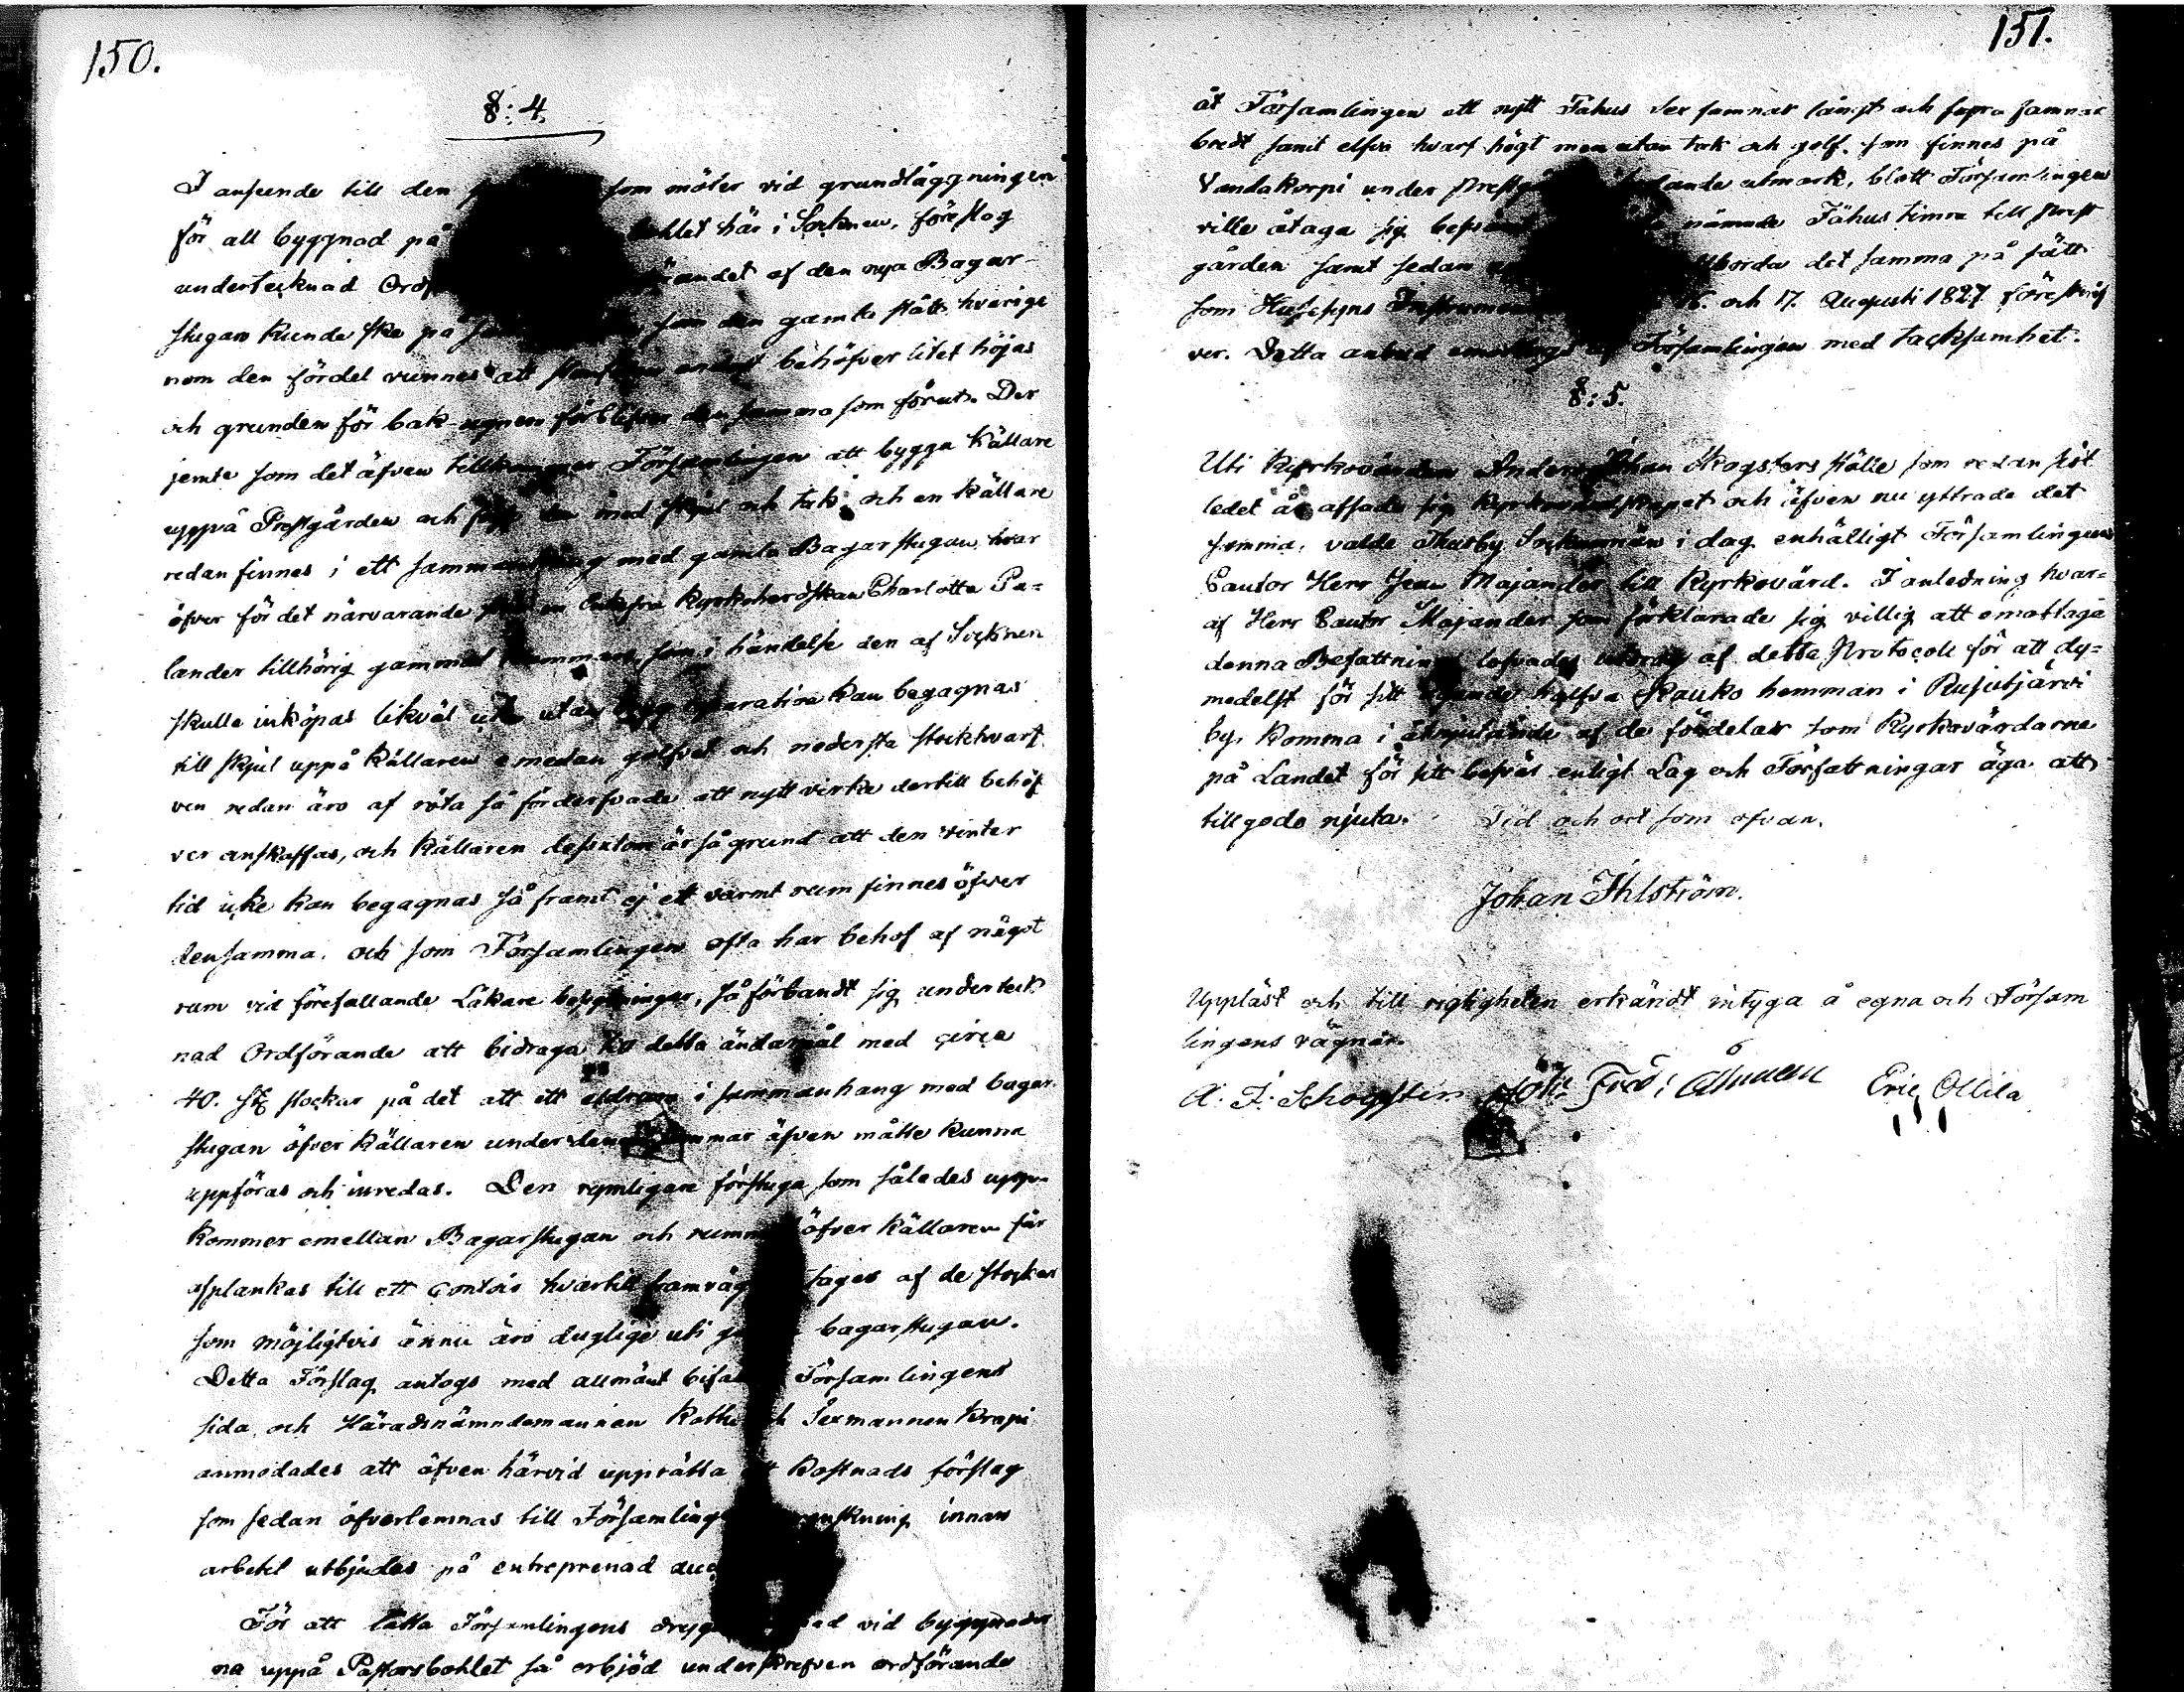 150.
§:4.
I anseende till den som möter vid grundläggningen
för all byggnad på här i Socknen, föreslog
undertecknad af den nya Bagar-
stugan kunde ske på som den gamla stått hvarige
nom den fördel vunnes att endast behöfver litet höjas
och grunden för bak-ugnen förblifver den samma som förut. Der
jemte som det äfven tillkommer Församlingen att bygga källare
uppå Prestgården och med skjul och tak, och en källare
redan finnes i ett sammanhang med gamla Bagarstugan hvar
öfver för det närvarande Enkefru Kyrkoherdskan Charlotta Pa=
lander tillhörig gammal som i händelse den af Socknen
skulle inköpas likväl utan reparation kan begagnas
till skjul uppå källaren emedan golfvet och nedersta stockhvarf
ven redan äro af röta så förderfvade att nytt virke dertill behöf
ver anskaffas, och källaren dessutom är så grund att den vinter
tid icke kan begagnas så framt ej ett varmt rum finnes öfver
densamma, och som Församlingen ofta har behof af något
rum vid förefallande Läkare besigtningar, så förbandt sig underteck
nad Ordförande att bidraga till detta ändamål med circa
40. st stockar på det att ett eldrum i sammanhang med bagar
stugan öfver källaren under den äfven måtte kunna
uppföras och inredas. Den rymligare förstuga som således upp-
kommer emellan Bagarstugan och rummet öfver källaren får
afplankas till ett contoir hvartill framvägg tages af de stockar
som möjligtvis ännu äro duglige uti gamla bagarstugan.
Detta Förslag antogs med allmänt bifall Församlingens
sida, och Häradsnämndemannen och Sexmannen Krapi
anmodades att äfven härvid upprätta ett kostnads förslag
som sedan öfverlemnas till Församlingens granskning innan
arbetet utbjudes på entreprenad
För att lätta Församlingens vid byggnader
na uppå Pastorsbohlet så erbjöd underskrefven ordförande
151.
åt Församlingen ett nytt Fähus sex famnar långt och fyra famnar
bredt samt elfva hvarf högt men utan tak och golf. som finnes på
Vandakorpi under utmark, blott Församlingen
ville åtaga sig nämnde Fähus timra till Prest
gården samt sedan det samma på sätt
som Husesyns 16. och 17. Augusti 1827 föreskrif
ver. Detta anbud emottogs af Församlingen med tacksamhet.
§:5.
Uti Kyrkovärden Anders Johan Skogsters ställe som redan sist
ledet år afsade sig Kyrkovärdskapet och äfven nu yttrade det
samma, valde Thusby Sockenmän i dag enhälligt Församlingens
Cantor Herr Jean Majander till Kyrkovärd. I anledning hvar=
af Herr Cantor Majander som förklarade sig villig att emottaga
denna Befattning lofvades utdrag af detta Protocoll för att dy=
medelst för sitt ägande halfva Skauko hemman i Rusutjärvi
by, komma i åtnjutande af de fördelar som Kyrkovärdarne
på Landet för sitt besvär enligt Lag och Författningar äga att
tillgodo njuta. Tid och ort som ofvan.
Johan Ihlström.
Uppläst och till rigtigheten erkändt intyga å egna och Försam
lingens vägnar.
A. J. Eric Ollila